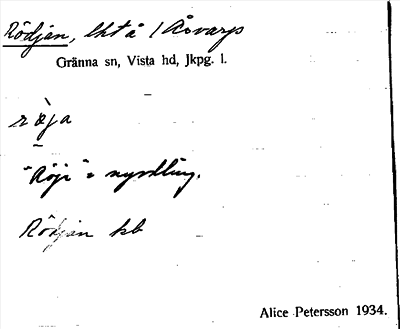 Rödjan, lht å 1 Åsvarp
Gränna sn, Vista hd, Jkpg. l.
röja
"Röje" = nyodling.
Rödjan kb
Alice Petersson 1934.